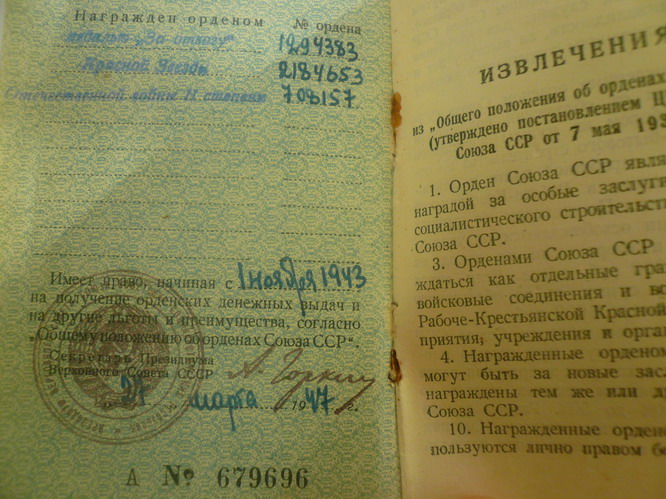 Награжден орденом
№ ордена
медалью „За отвагу" 1294383
Красной Звезды 2184653
Отечественной войны II степени 708157
Имеет право, начиная с 1 ноября 1943
на получение орденских денежных выдач и
на другие льготы и преимущества, согласно
„Общему положению об орденах Союза ССР".
Секретарь Президиума
Верховного Совета СССР
А. Горкин
21 марта 1947 г.
А № 679696
ИЗВЛЕЧЕНИЯ
из „Общего положения об орденах
(утверждено постановлением
Союза ССР от 7 мая 193
1. Орден Союза ССР явля
наградой за особые заслуги
социалистического строительст
Союза ССР.
3. Орденами Союза ССР
ждаться как отдельные гра
войсковые соединения и во
Рабоче-Крестьянской Красной
приятия, учреждения и орган
4. Награжденные орденом
могут быть за новые зас
награждены тем же или д
Союза ССР.
10. Награжденные орден
пользуются лично правом бе